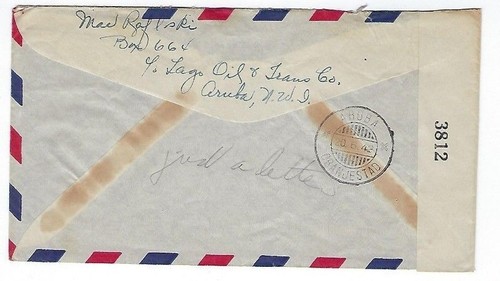 Mac Rafalski
Box 664
℅ Lago Oil & Trans Co.
Aruba, N.W.I.
ARUBA
ORANJESTAD
3812
just a letter